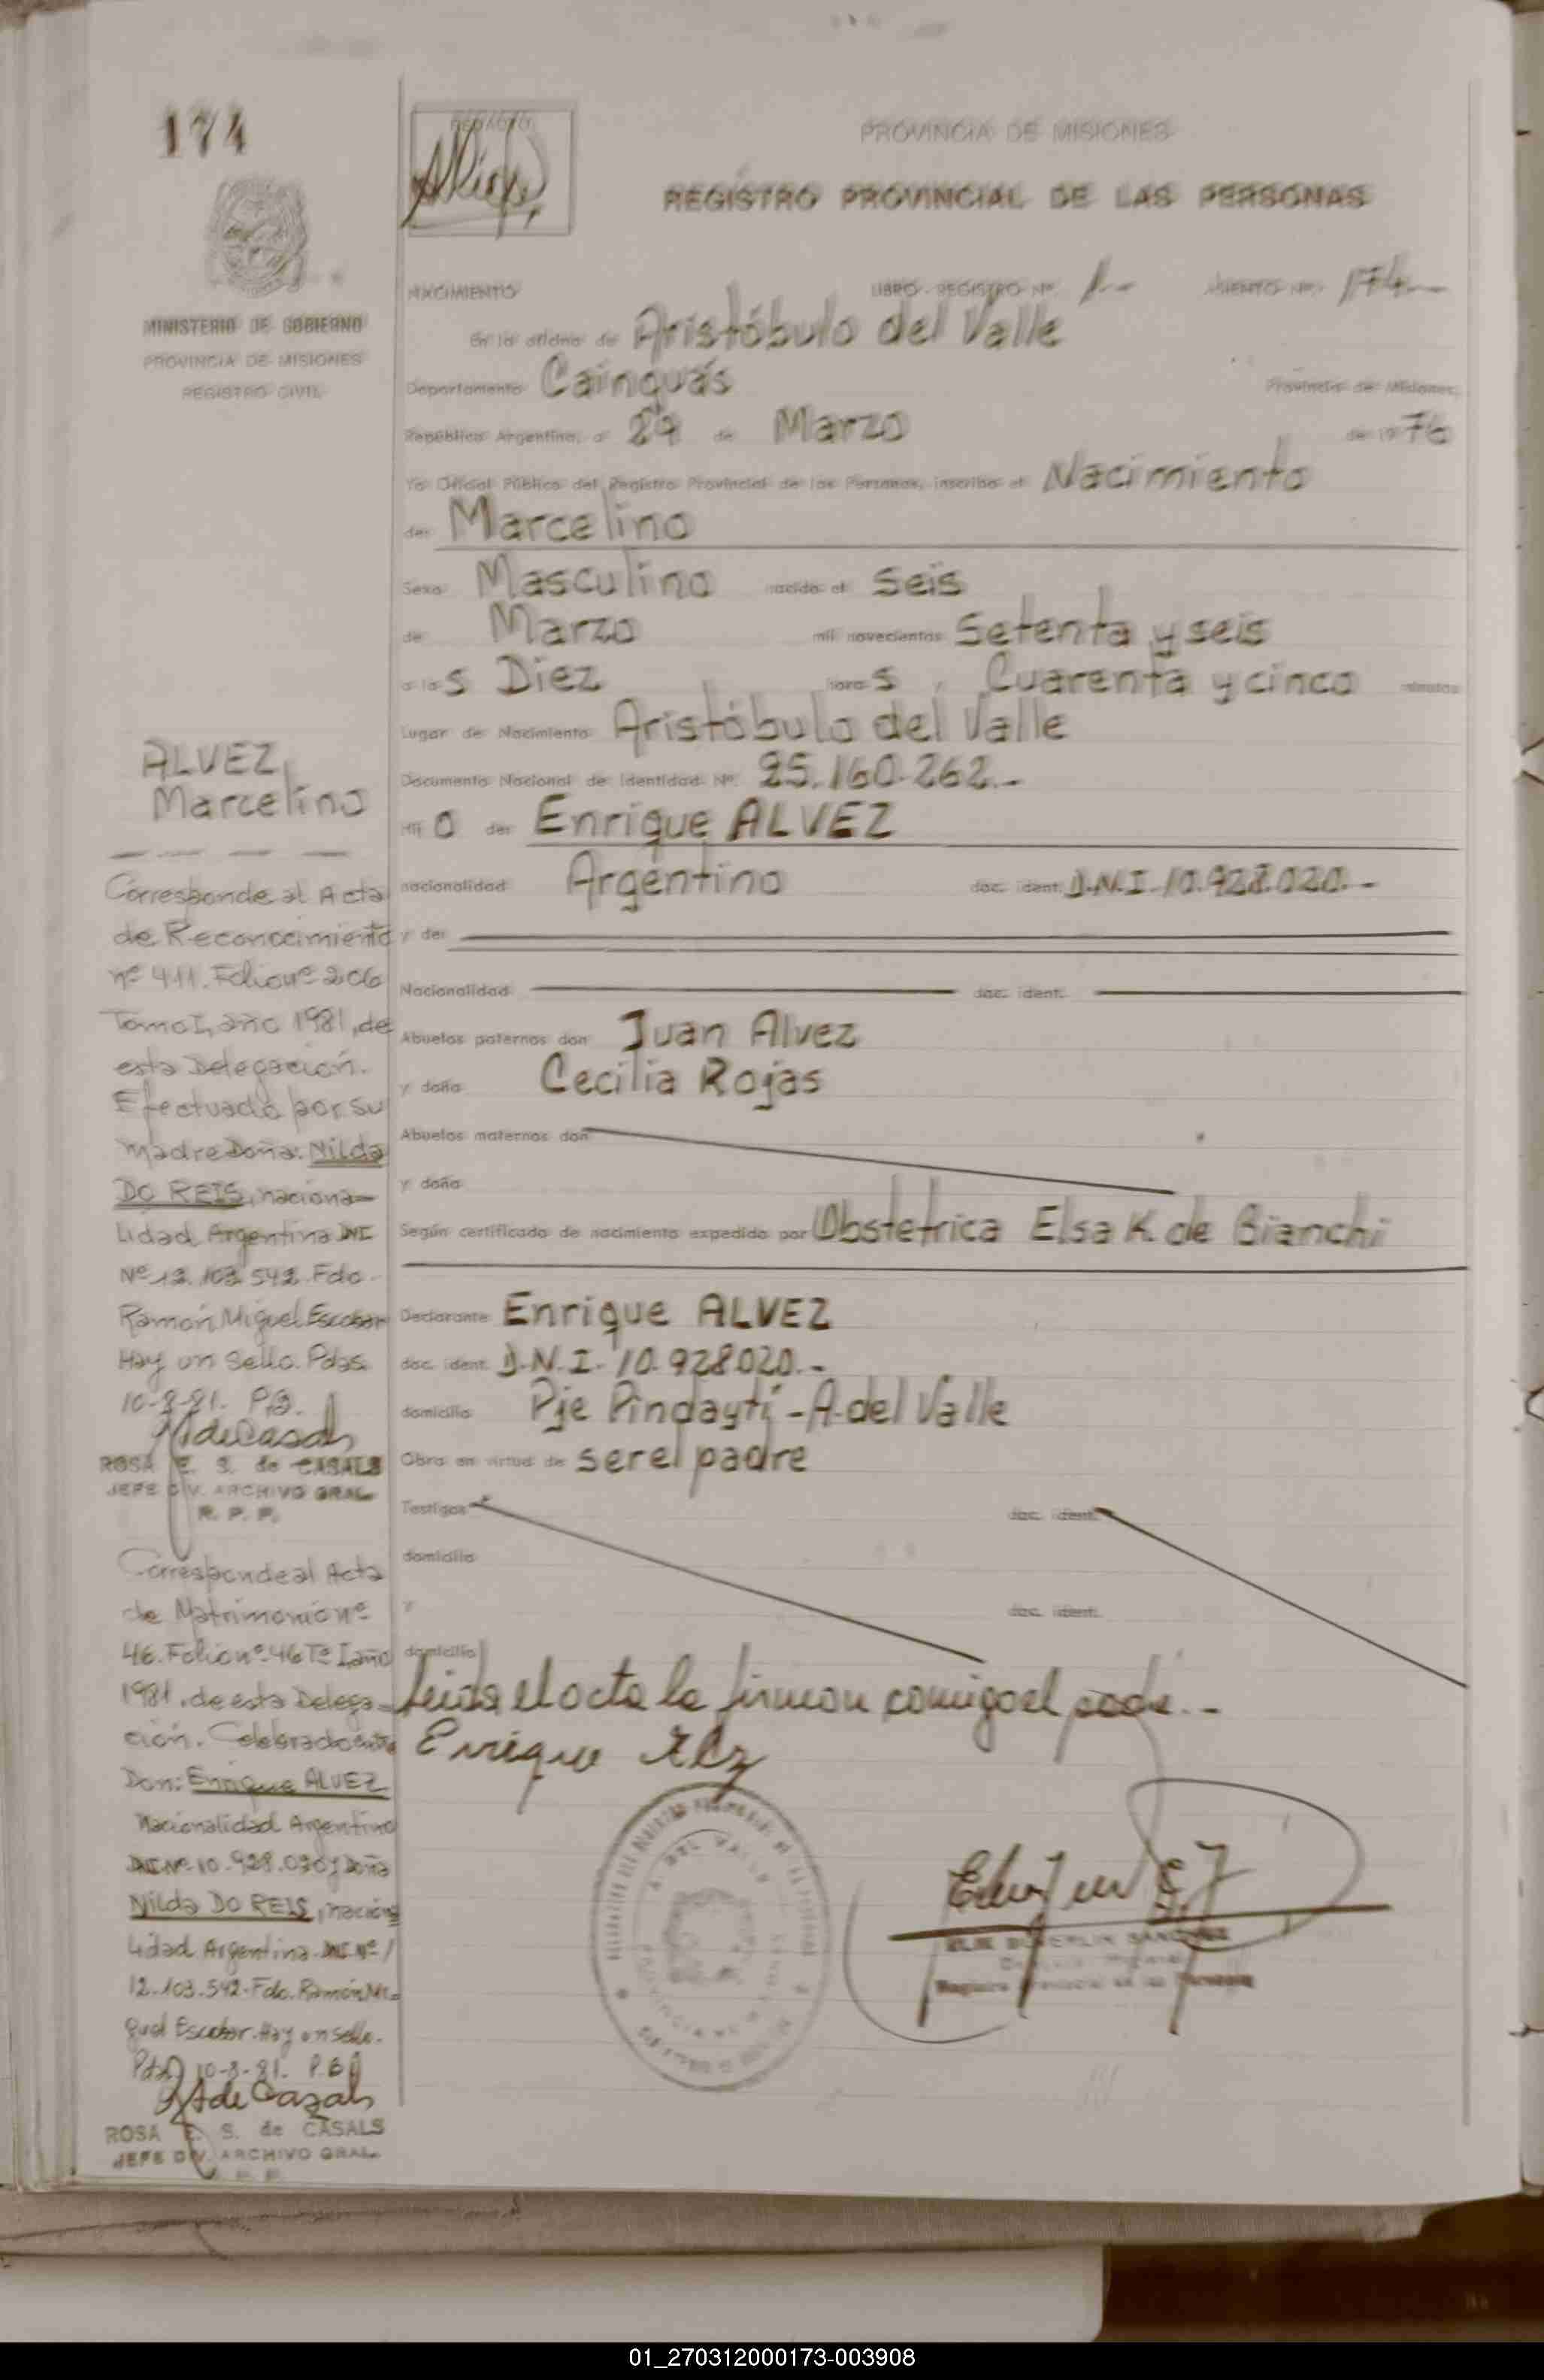 174
PROVINCIA DE MISIONES
REGISTRO PROVINCIAL DE LAS PERSONAS
MINISTERIO DE GOBIERNO
PROVINCIA DE MISIONES
REGISTRO CIVIL
NACIMIENTO LIBRO - REGISTRO Nº. 1-- ASIENTO Nº. 174--
En la oficina de Aristóbulo del Valle
Departamento Cainguás Provincia de Misiones,
República Argentina, a 29 de Marzo de 1976
Yo Oficial Público del Registro Provincial de las Personas, inscribo el Nacimiento
de: Marcelino
Sexo Masculino nacido el Seis
de Marzo mil novecientos Setenta y seis
a las Diez horas, Cuarenta y cinco minutos
Lugar de Nacimiento Aristóbulo del Valle
Documento Nacional de Identidad Nº. 25.160.262.-
Hijo de: Enrique ALVEZ
nacionalidad Argentino doc. ident. D.N.I. 10.928.020.-
y de:
Nacionalidad doc. ident.
Abuelos paternos don Juan Alvez
y doña Cecilia Rojas
Abuelos maternos don
y doña
Según certificado de nacimiento expedido por Obstetrica Elsa K. de Bianchi
Declarante Enrique ALVEZ
doc. ident. D.N.I. 10.928020.-
domicilio Pje Pindaytí - A. del Valle
Obra en virtud de ser el padre
Testigos doc. ident.
domicilio
y doc. ident.
domicilio
Leida el acta la firman comigo el padre.-
Enrique Alvez
ALVEZ,
Marcelino
Corresponde al Acta
de Reconocimiento
nº 411. Folio nº 206
Tomo I, año 1981, de
esta Delegación.
Efectuado por su
madre Doña: Nilda
DO REIS, naciona-
lidad Argentina DNI
Nº 12.103.542. Fdo.
Ramón Miguel Escobar
Hay un sello. Pdas.
10-8-81. P.B.
ROSA E. S. de CASALS
JEFE DIV. ARCHIVO GRAL.
R. P. P.
Corresponde al Acta
de Matrimonio nº
46. Folio nº 46 Tº I, año
1981, de esta Delega-
ción. Celebrado entre
Don: Enrique ALVEZ
Nacionalidad Argentino
DNI Nº 10.928.020 y Doña
Nilda DO REIS, naciona
lidad Argentina DNI Nº/
12.103.542-Fdo. Ramón Mi-
guel Escobar. Hay un sello.
Pdas. 10-8-81. P.B.
ROSA E. S. de CASALS
JEFE DIV. ARCHIVO GRAL.
01_270312000173-003908